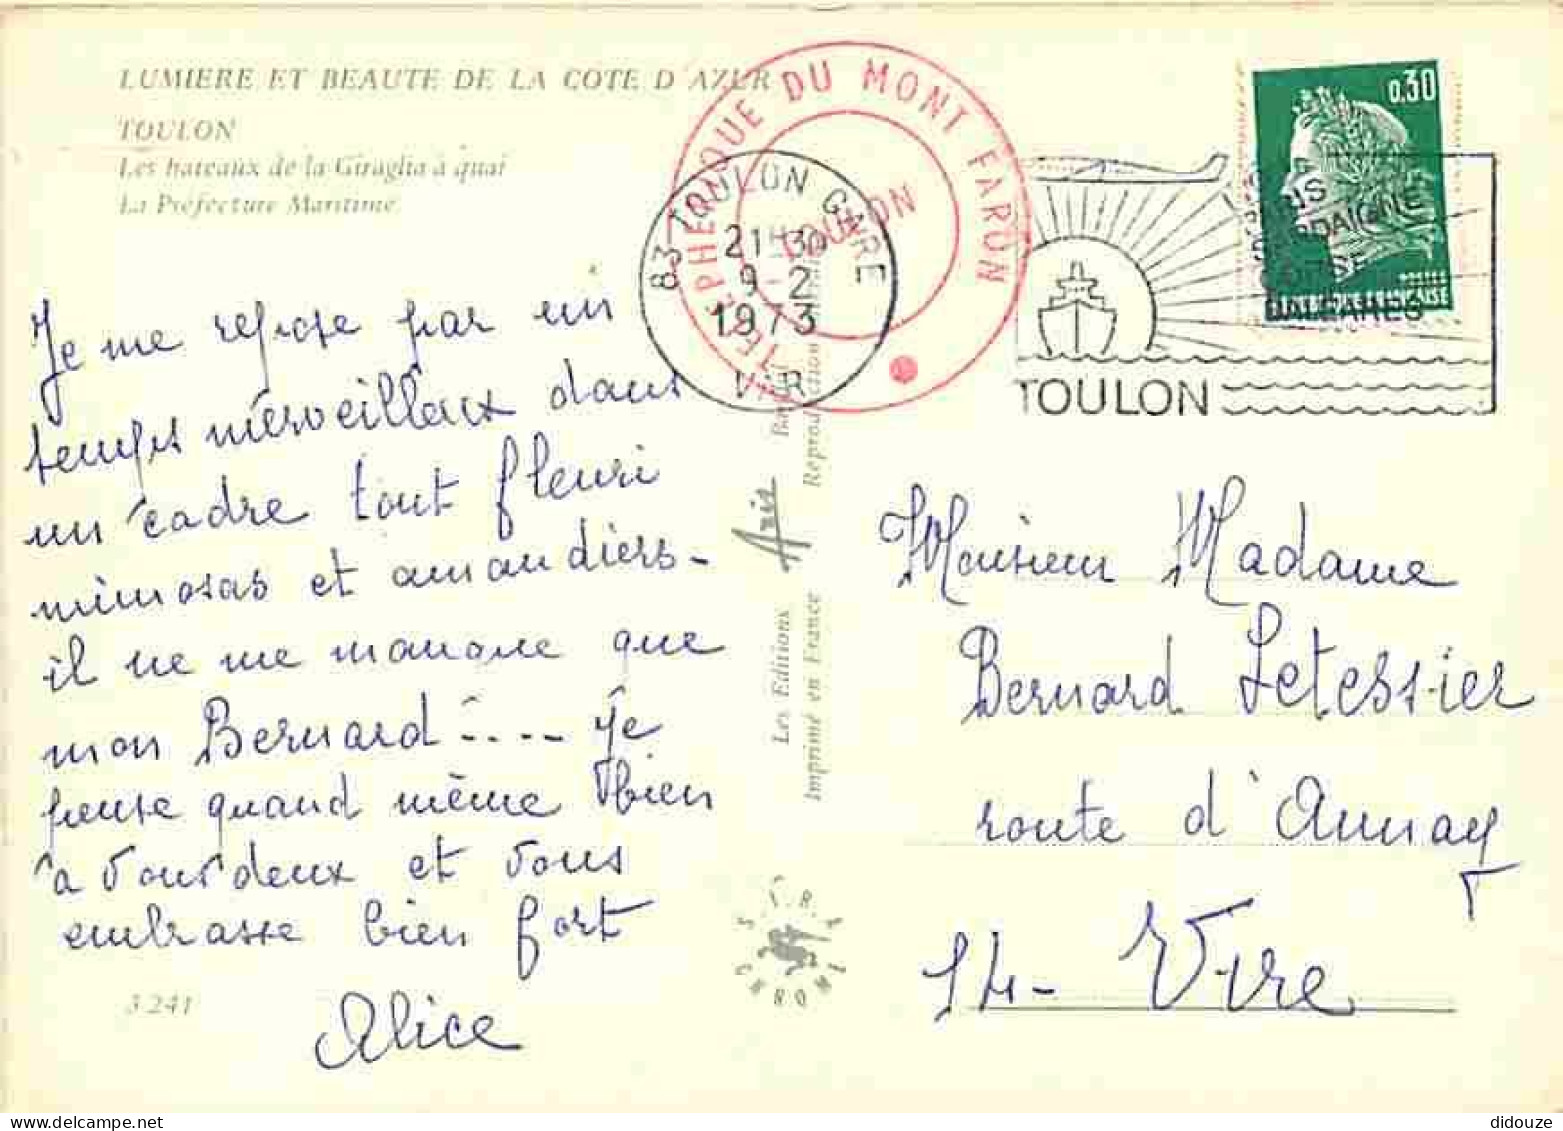 LUMIERE ET BEAUTE DE LA COTE D'AZUR
TOULON
Les bateaux de la Giraglia à quai
La Préfecture Maritime.
Je me repose par un
temps merveilleux dans
un cadre tout fleuri
mimosas et amandiers -
il ne me manque que
mon Bernard .... Je
pense quand même bien
à vous deux et vous
embrasse bien fort
Alice
3.241
TELEPHERIQUE DU MONT FARON
TOULON
83 TOULON GARE
21H30
9-2
1973
VAR
Les Editions Aris
Imprimé en France
Reproduction
0.30
POSTES
REPUBLIQUE FRANÇAISE
SARDAIGNE
CORSE
BALEARES
TOULON
Monsieur Madame
Bernard Letessier
route d'Aunay
14 - Vire
CHROME
didouze